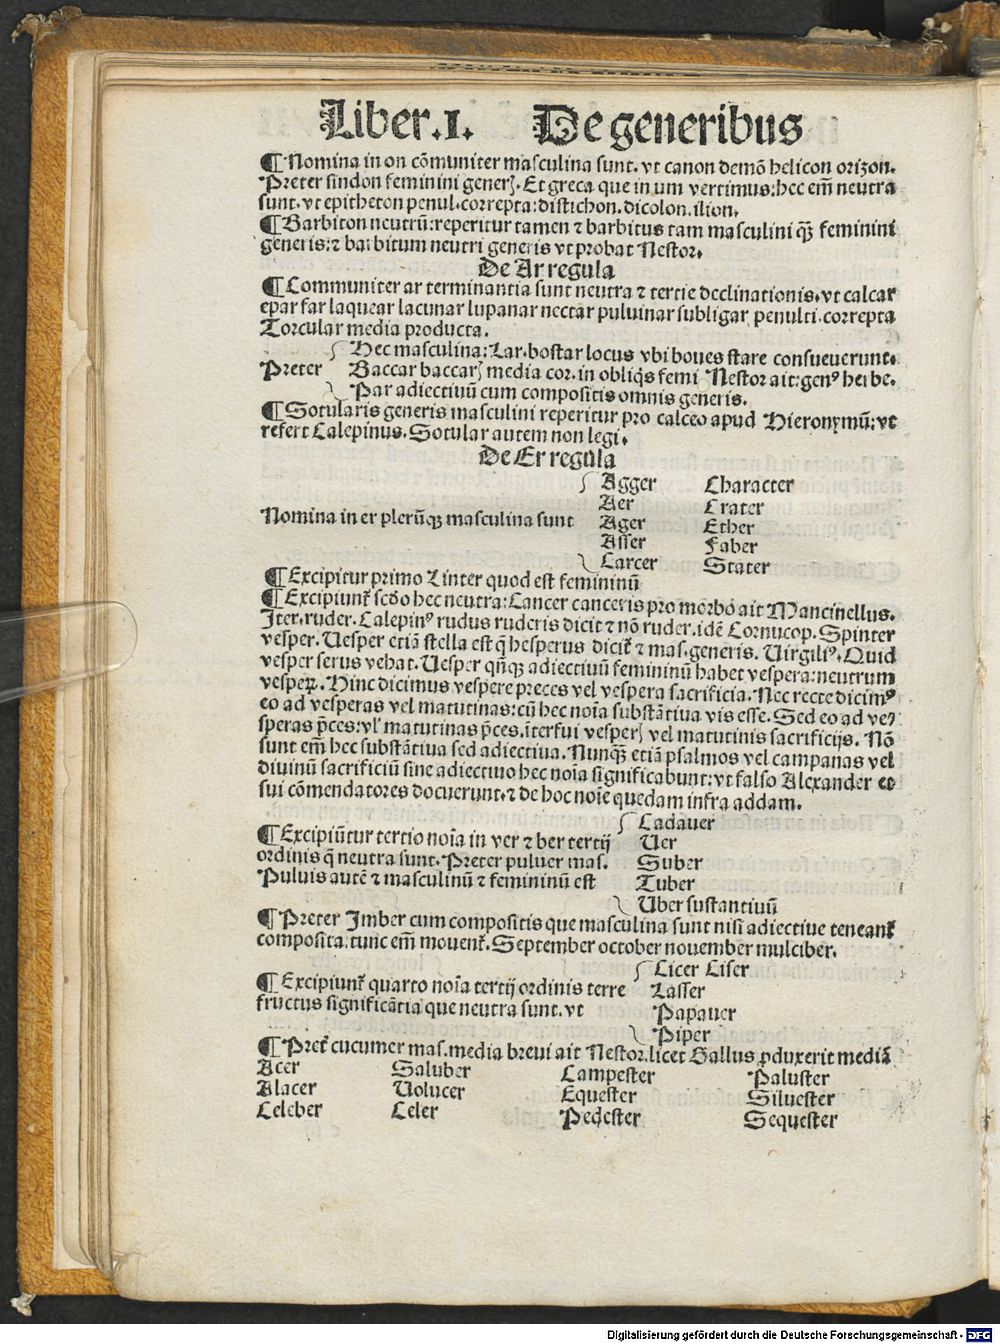 Liber.I. De generibus
¶ Nomina in on cōmuniter masculina sunt. vt canon demō helicon orizon.
Preter sindon feminini generꝭ. Et greca que in um vertimus: hec em̄ neutra
sunt. vt epitheton penul. correpta: distichon. dicolon. ilion.
¶ Barbiton neutrū: reperitur tamen ⁊ barbitus tam masculini qꝫ feminini
generis: ⁊ barbitum neutri generis vt probat Nestor.
De Ar regula
¶ Communiter ar terminantia sunt neutra ⁊ tertie declinationis. vt calcar
epar far laquear lacunar lupanar nectar puluinar subligar penulti. correpta
Torcular media producta.
Hec masculina: Lar. bostar locus vbi boues stare consueuerunt.
Preter Baccar baccarꝭ media cor. in obliq̄s femi Nestor ait: genꝰ herbe.
Par adiectiuū cum compositis omnis generis.
¶ Sotularis generis masculini reperitur pro calceo apud Hieronymū: vt
refert Calepinus. Sotular autem non legi.
De Er regula
Agger Character
Aer Crater
Nomina in er plerūqꝫ masculina sunt Ager Ether
Asser Faber
Carcer Stater
¶ Excipitur primo Linter quod est femininū
¶ Excipiunt᷑ scḋo hec neutra: Cancer canceris pro morbo ait Mancinellus.
Iter. ruder. Calepinꝰ rudus ruderis dicit ⁊ nō ruder. idē Cornucop. Spinter
vesper. Uesper etiā stella est q̄ hesperus dicit᷑ ⁊ mas. generis. Uirgiliꝰ. Quid
vesper serus vehat. Uesper qn̄qꝫ adiectiuū femininū habet vespera: neutrum
vesperꝝ. Hinc dicimus vespere preces vel vespera sacrificia. Nec recte dicimꝰ
eo ad vesperas vel matutinas: cū hec noīa substātiua vis esse. Sed eo ad ve⸗
speras p̄ces: vl᷑ matutinas p̄ces. īterfui vesperꝭ vel matutinis sacrificijs. Nō
sunt em̄ hec substātiua sed adiectiua. Nunqꝫ etiā psalmos vel campanas vel
diuinū sacrificiū sine adiectiuo hec noīa significabunt: vt falso Alexander et
sui cōmendatores docuerunt. ⁊ de hoc noīe quedam infra addam.
Cadauer
¶ Excipiūtur tertio noīa in ver ⁊ ber tertij Uer
ordinis q̄ neutra sunt. Preter puluer mas. Suber
Puluis autē ⁊ masculinū ⁊ femininū est Tuber
Uber sustantiuū
¶ Preter Imber cum compositis que masculina sunt nisi adiectiue teneant᷑
composita. tunc em̄ mouent᷑. September october nouember mulciber.
Cicer Ciser
¶ Excipiunt᷑ quarto noīa tertij ordinis terre Lasser
fructus significātia que neutra sunt. vt Papauer
Piper
¶ Pret᷑ cucumer mas. media breui ait Nestor. licet Gallus ꝓduxerit mediā
Acer Saluber Campester Paluster
Alacer Uolucer Equester Siluester
Celeber Celer Pedester Sequester
Digitalisierung gefördert durch die Deutsche Forschungsgemeinschaft - DFG